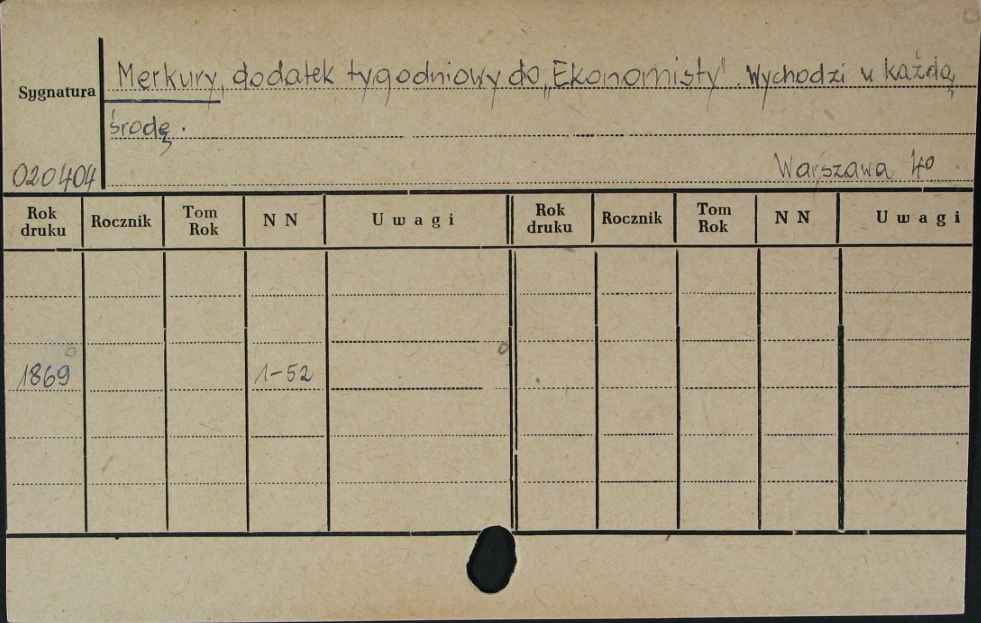 Merkury, dodatek tygodniowy do „Ekonomisty". Wychodzi w każdą
Sygnatura
środę.
020404
Warszawa 4o
Rok druku Rocznik Tom Rok N N Uwagi Rok druku Rocznik Tom Rok N N Uwagi
1869 1-52